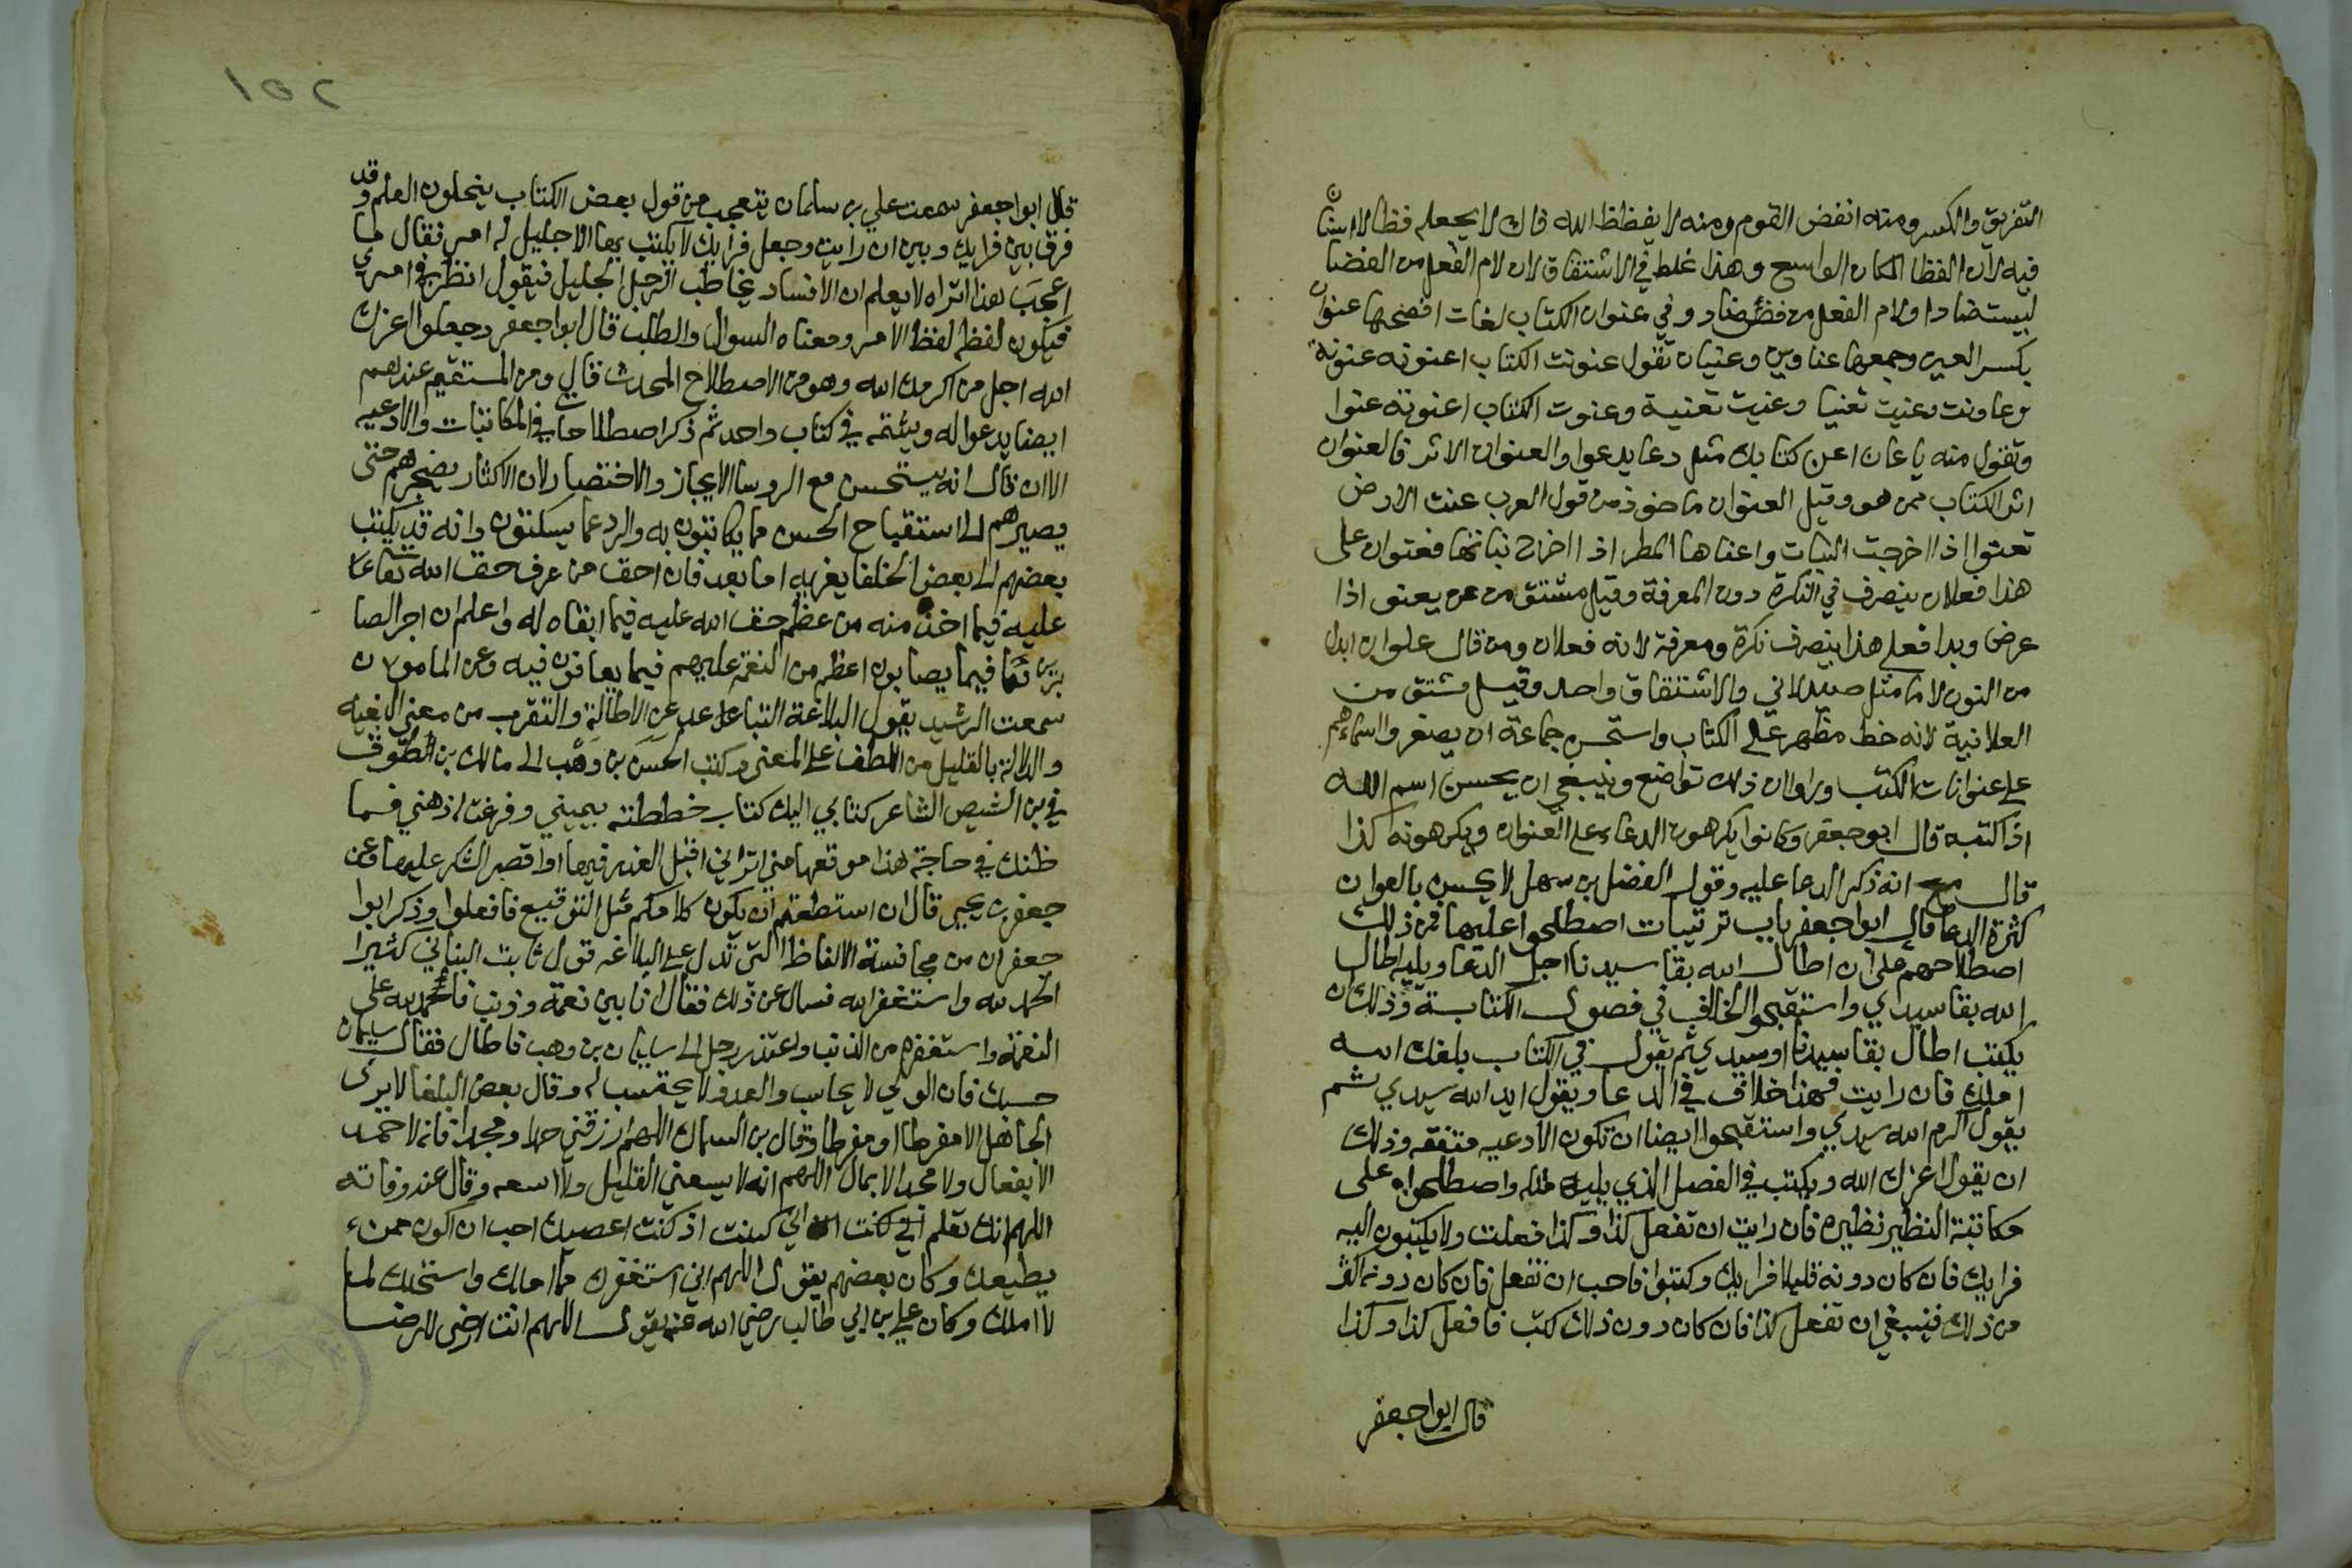 التفريق والكسر ومنه انفض القوم ومنه لا يفظظ الله فاك لا يجعله فظا لا اسنان
فيه لان الفظا المكان الواسع وهذا غلط في الاشتقاق لان لام الفعل من الفضا
ليست ضادا ولام الفعل من فظ ضاد وفي عنوان الكتاب لغات افصحها عنوان
بكسر العين وجمعها عناوين وعنيان تقول عنونت الكتاب اعنونه عنونة
وعاونت وعنيت تعنيا وعنيت تعنية وعنوت الكتاب اعنونه عنوا
وتقول منه يا عان اعن كتابك مثل دعا يدعوا والعنوان الاثر فالعنوان
اثر الكتاب ممن هو وقيل العنوان ماخوذ من قول العرب عنت الارض
تعنوا اذا اخرجت النبات واعناها المطر اذا اخرج نباتها فعنوان على
هذا فعلان ينصرف في النكرة دون المعرفة وقيل مشتق من عن يعنى اذا
عرض وبدا فعلى هذا ينصرف نكرة ومعرفة لانه فعلان ومن قال علوان ابدل
من النون لاما مثل صيدلاني والاشتقاق واحد وقيل مشتق من
العلانية لانه خط مظهر على الكتاب واستحسن جماعة ان يصغروا اسماءهم
على عنوانات الكتب وراوا ان ذلك تواضع وينبغي ان يحسن اسم الله
اذا كتبه قال ابو جعفر وكانوا يكرهون الدعاء على العنوان ويكرهونه كذا
قال مع انه ذكر الدعا عليه وقول الفضل بن سهل لا يحسن بالعوان
كثرة الدعا قال ابوا جعفر باب ترتيبات اصطلحوا عليها فمن ذلك
اصطلاحهم على ان اطال الله بقا سيدنا اجل الدعا ويليه اطال
الله بقا سيدي واستقبحوا الخالف في فصول الكتابة وذلك ان
يكتب اطال بقا سيدنا او سيدي ثم يقول في الكتاب بلغك الله
املك فان رايت فهذا خلاف في الدعا ويقول ايد الله سيدي ثم
يقول اكرم الله سيدي واستقبحوا ايضا ان تكون الادعيه متفقه وذلك
ان يقول اعزك الله ويكتب في الفصل الذي يليه مثله واصطلحوا على
مكاتبة النظير نظيره فان رايت ان تفعل كذا وكذا فعلت ولا يكتبون اليه
فرايك فان كان دونه قليلا فرايك وكتبوا فاحب ان تفعل فان كان دونه اكثر
من ذلك فينبغي ان تفعل كذا فان كان دون ذلك كتب فافعل كذا وكذا
قال ابوا جعفر
قال ابوا جعفر سمعت علي بن سلمان يتعجب من قول بعض الكتاب ينحلون العلم وقد
فرق بين فرايك وبين ان رايت وجعل فرايك لا يكتب بها الا جليل له امر فقال لما
اعجب هذا اتراه لا يعلم ان الانسان يخاطب الرجل الجليل فيقول انظر في امري
فيكون لفظه لفظ الامر ومعناه السوال والطلب قال ابوا جعفر وجعلوا اعزك
الله اجل من اكرمك الله وهو من الاصطلاح المحدث قال ومن المستقيم عندهم
ايضا يدعوا له ويشتمه في كتاب واحد ثم ذكر اصطلاحات في المكاتبات والادعيه
الا ان قال انه يستحسن مع الروسا الايجاز والاختصار لان الاكثار يضجرهم حتى
يصيرهم الى استقباح الحسن مما يكاتبون به والرد عما يسلنون وانه قد يكتب
بعضهم الى بعض الخلفا يغريه اما بعد فان احق من عرف حق الله تعالى
عليه فيما اخذ منه من عظم حق الله عليه فيما ابقاه له واعلم ان اجر الصا
برين ثما فيما يصابون اعظم من النعمة عليهم فيما يعافون فيه وعن المامون
سمعت الرشيد يقول البلاغة التباعد عن الاطالة والتقرب من معنى البغيه
والدلالة بالقليل من اللطف على المعنى وكتب الحسن بن وهب الى مالك بن الطوق
في بن الشيص الشاعر كتابي اليك كتاب خططته بيميني وفرغت له ذهني فما
ظنك في حاجة هذا موقعها مني اتراني اقبل العذر فيها او اقصر الشكر عليها وعن
جعفر بن يحيى قال ان استطعتم ان يكون كلامكم مثل التوقيع فافعلوا وذكر ابوا
جعفر ان من مجانسة الالفاظ التي تدل على البلاغه قول ثابت البناني كثيرا
الحمد لله واستغفر الله فسال عن ذلك فقال انا بين نعمة وذنب فاحمد الله على
النعمة واستغفره من الذنب واعتذر رجل الى سليمان بن وهب فاطال فقال سليمان
حسبك فان الولي لا يحاسب والعدو لا يحتسب له وقال بعض البلغا لا يرى
الجاهل الا مفرطا او مفرطا وقال بن السماك اللهم ارزقني حمدا ومجدا فانه لا حمد
الا بفعال ولا مجد الا بمال اللهم انه لا يسعني القليل ولا اسعه وقال عند وفاته
اللهم انك تعلم اني كنت اذ كنت اعصيك احب ان اكون ممن
يطيعك وكان بعضهم يقول اللهم اني استغفرك مما املك واستحلك لما
لا املك وكان علي بن ابي طالب رضي الله عنه يقول اللهم انت ارضى للرضا
١٥٢